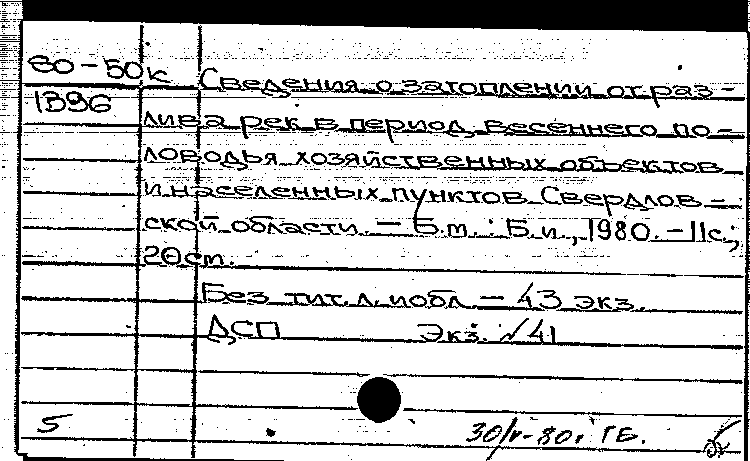 80-50к Сведения о затоплении от раз-
1396
лива рек в период весеннего по-
ловодья хозяйственных объектов
и населенных пунктов Свердлов-
ской области. — Б.м. : Б.и., 1980. - 11с.;
20см.
Без тит. л. и обл. — 43 экз.
ДСП Экз. №41
5 30/V-80г. ГБ.